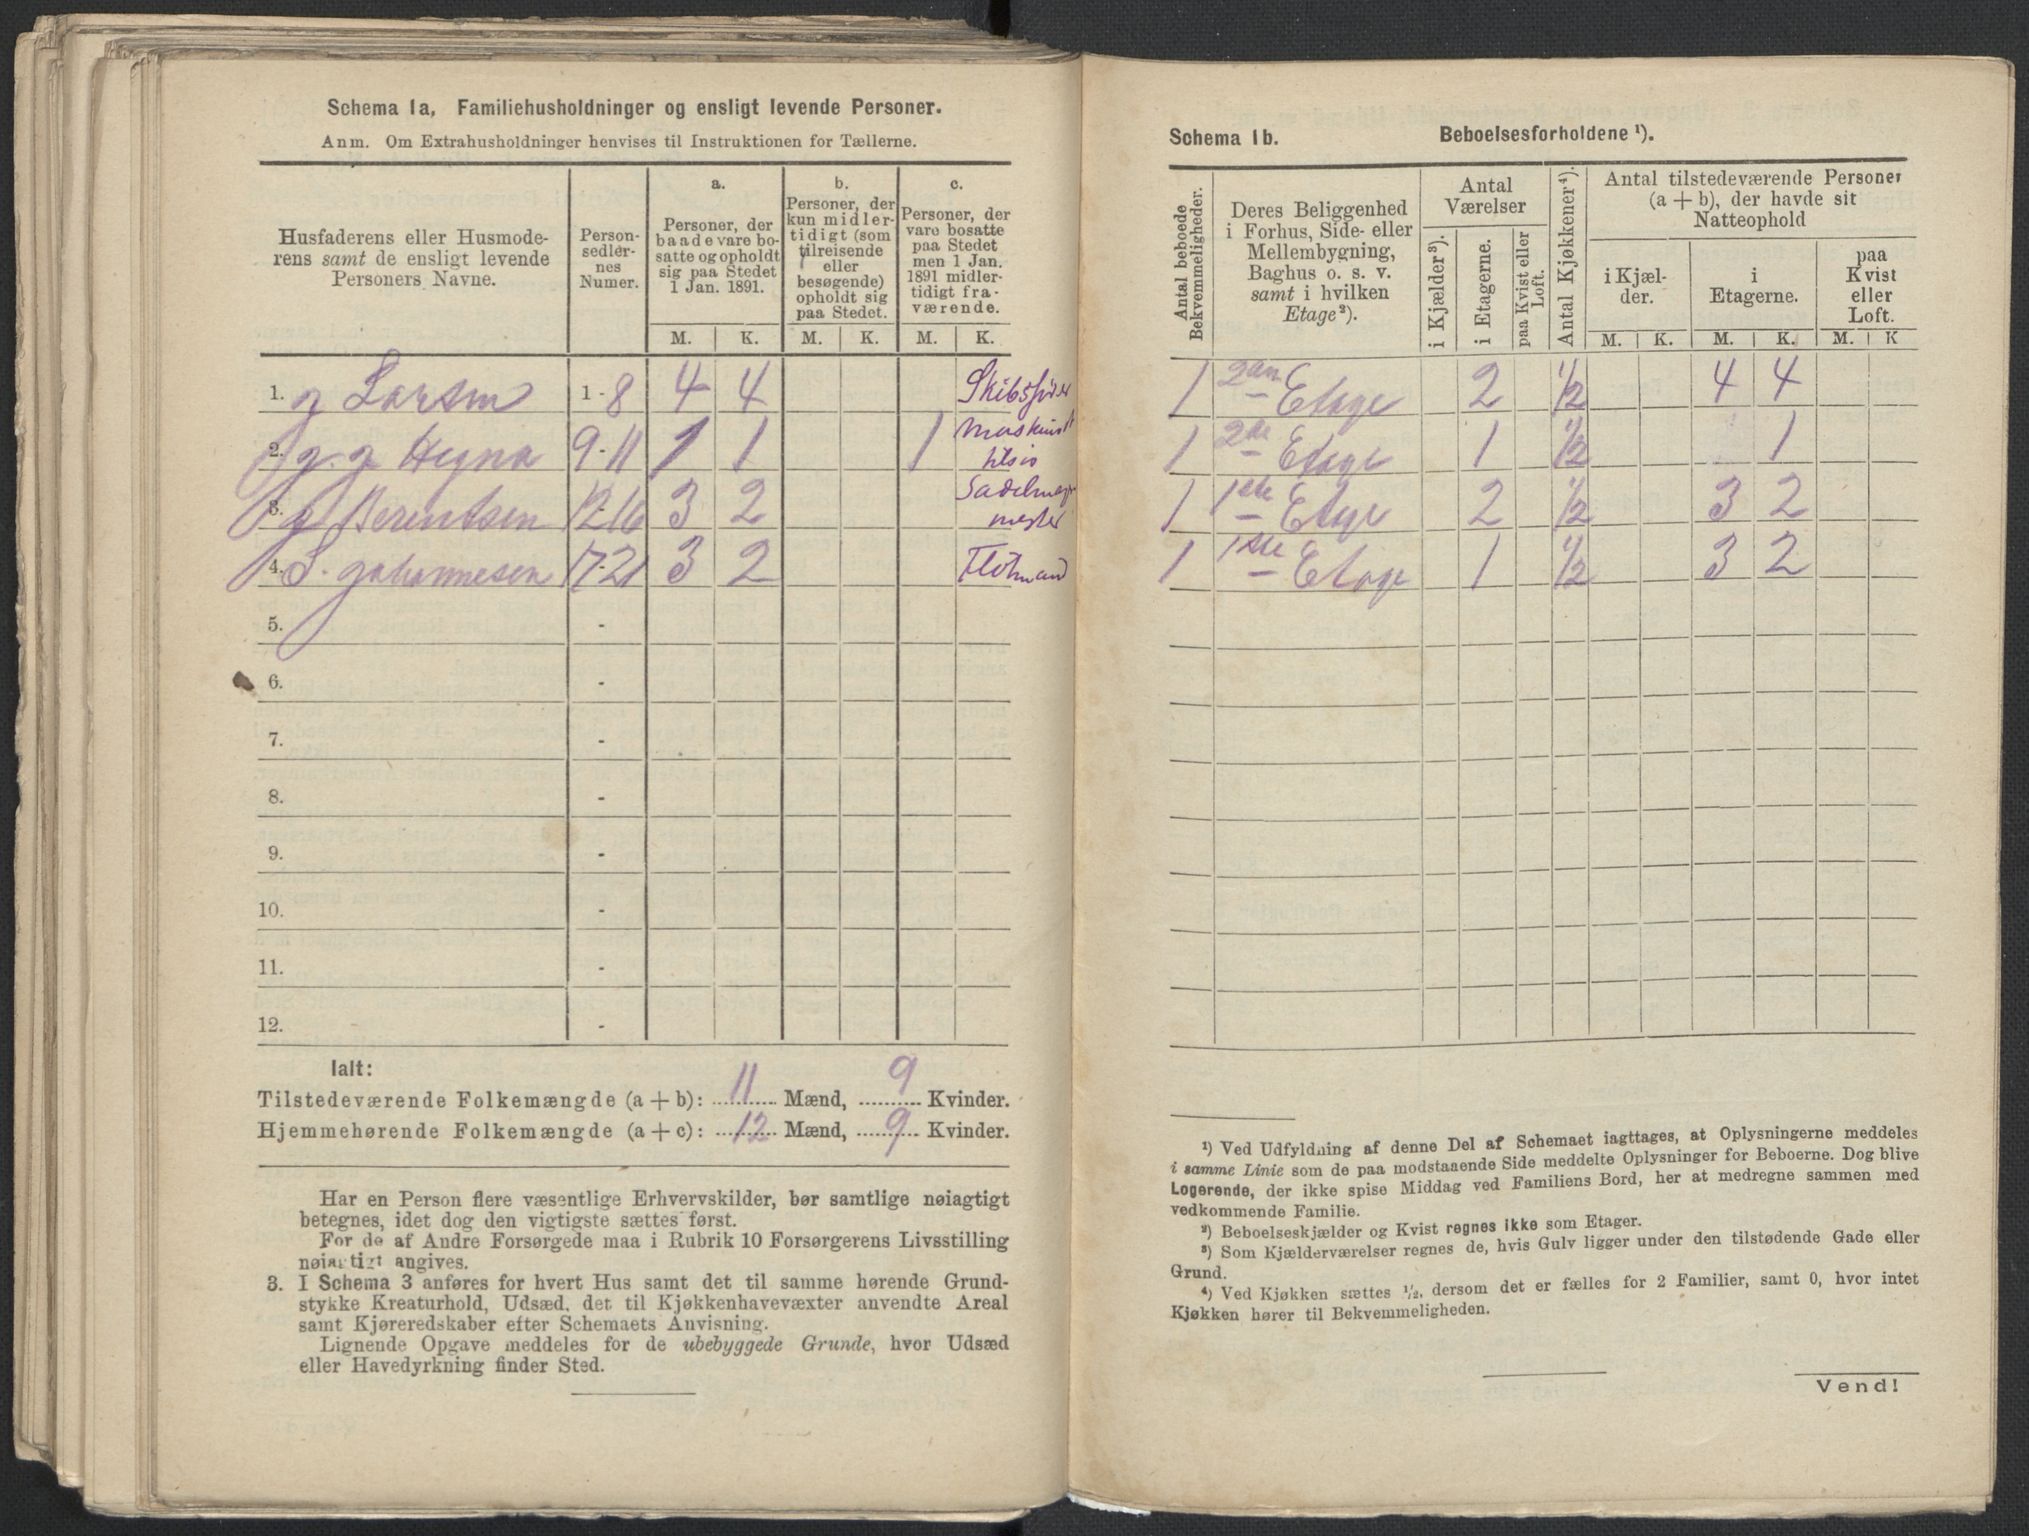 Schema 1a, Familiehusholdninger og ensligt levende Personer.
Anm. Om Extrahusholdninger henvises til Instruktionen for Tællerne.
Husfaderens eller Husmoderens samt de ensligt levende Personers Navne.
Personsedlernes Numer.
a.
Personer, der baade vare bosatte og opholdt sig paa Stedet 1 Jan. 1891.
b.
Personer, der kun midlertidigt (som tilreisende eller besøgende) opholdt sig paa Stedet.
c.
Personer, der vare bosatte paa Stedet men 1 Jan. 1891 midlertidigt fraværende.
M. K. M. K. M. K.
1. J Larsen 1-8 4 4 Skibstfører
2. J. J Hegna 9-11 1 1 1 Maskinist tilsjøs
3. J Berentsen 12-16 3 2 Sadelmagermester
4. S. Johannesen 17-21 3 2 Flötmand
5. -
6. -
7. -
8. -
9. -
10. -
11. -
12. -
Ialt:
Tilstedeværende Folkemængde (a + b): 11 Mænd, 9 Kvinder.
Hjemmehørende Folkemængde (a + c): 12 Mænd, 9 Kvinder.
Har en Person flere væsentlige Erhvervskilder, bør samtlige nøiagtigt
betegnes, idet dog den vigtigste sættes først.
For de af Andre Forsørgede maa i Rubrik 10 Forsørgerens Livsstilling
nøiagtigt angives.
3. I Schema 3 anføres for hvert Hus samt det til samme hørende Grund-
stykke Kreaturhold, Udsæd, det til Kjøkkenhavevæxter anvendte Areal
samt Kjøreredskaber efter Schemaets Anvisning.
Lignende Opgave meddeles for de ubebyggede Grunde, hvor Udsæd
eller Havedyrkning finder Sted.
Schema 1b. Beboelsesforholdene ¹).
Antal beboede Bekvemmeligheder.
Deres Beliggenhed i Forhus, Side- eller Mellembygning, Baghus o. s. v. samt i hvilken Etage ²).
Antal Værelser
i Kjælder ³).
i Etagerne.
paa Kvist eller Loft.
Antal Kjøkkener ⁴).
Antal tilstedeværende Personer (a + b), der havde sit Natteophold
i Kjælder.
i Etagerne.
paa Kvist eller Loft.
M. K. M. K. M. K
1 2den Etage 2 ½ 4 4
1 2de Etage 1 ½ 1
1 1ste Etage 2 ½ 3 2
1 1ste Etage 1 ½ 3 2
¹) Ved Udfyldning af denne Del af Schemaet iagttages, at Oplysningerne meddeles
i samme Linie som de paa modstaaende Side meddelte Oplysninger for Beboerne. Dog blive
Logerende, der ikke spise Middag ved Familiens Bord, her at medregne sammen med
vedkommende Familie.
²) Beboelseskjælder og Kvist regnes ikke som Etager.
³) Som Kjælderværelser regnes de, hvis Gulv ligger under den tilstødende Gade eller
Grund.
⁴) Ved Kjøkken sættes ½, dersom det er fælles for 2 Familier, samt 0, hvor intet
Kjøkken hører til Bekvemmeligheden.
Vend!